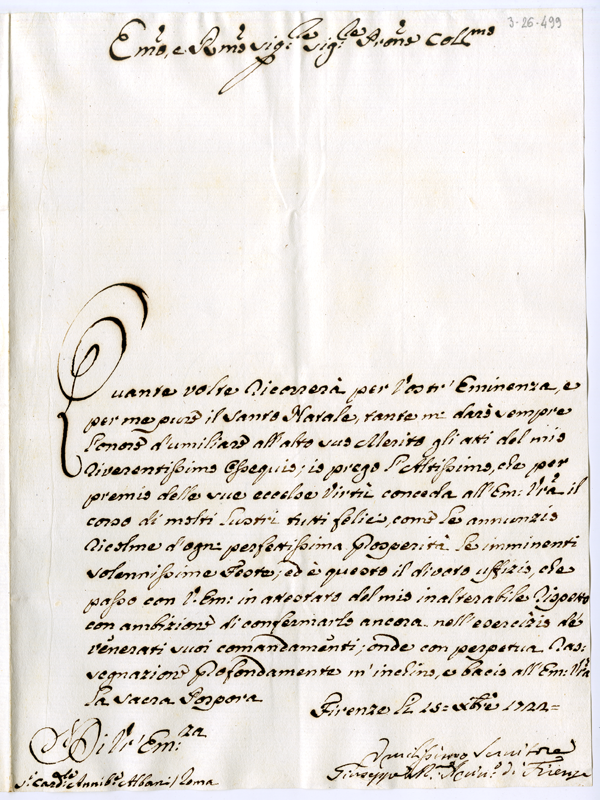 3-26-499
Em.o, e Rm.o Sig.re Sig.re Pron.e Col.mo
Quante volte ricorrerà per Vostr' Eminenza, e
per me pure il Santo Natale, tante mi darò sempre
l'onore d'umiliare all'alto suo Merito gli atti del mio
riverentissimo Ossequio; io prego l'Altissimo, che per
premio delle sue eccelse Virtù conceda all'Em: Vrã il
corso di molti lustri tutti felici, come le annunzio
ricolme d'ogni perfettissima prosperità le imminenti
solennissime Feste; ed è questo il divoto uffizio, che
passo con l'Em: in attestato del mio inalterabile rispetto
con ambizione di confermarlo ancora nell'esercizio de'
venerati suoi comandamenti; onde con perpetua ras:
segnazione profondamente m'inclino, e bacio all'Em: Vrã
la Sacra Porpora
Firenze li 15 = Xbre 1722 =
Di V.r' Em.za
S.r Card.le Annib.e Albani / Roma
Umilissimo Servitore
Giuseppe M.a di Firenze